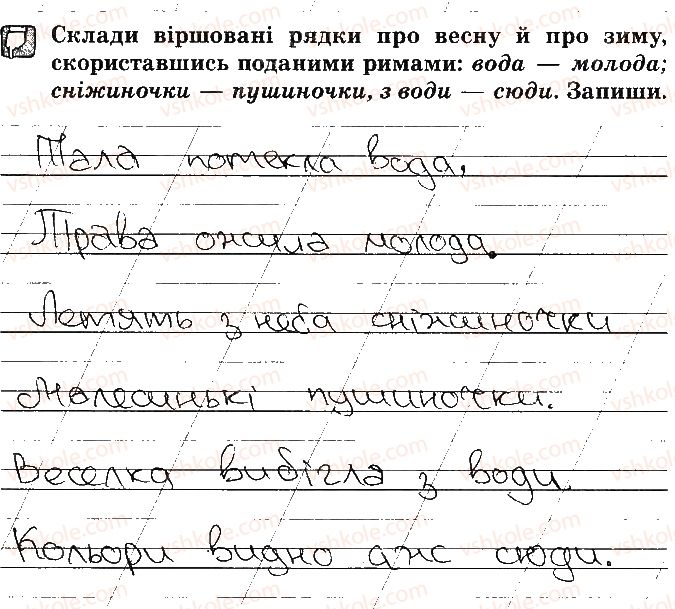 Склади віршовані рядки про весну й про зиму,
скориставшись поданими римами: вода — молода;
сніжиночки — пушиночки, з води — сюди. Запиши.
Тала потекла вода,
Трава ожила молода.
Летять з неба сніжиночки
Малесинькі пушиночки.
Веселка вибігла з води,
Кольори видно аж сюди.